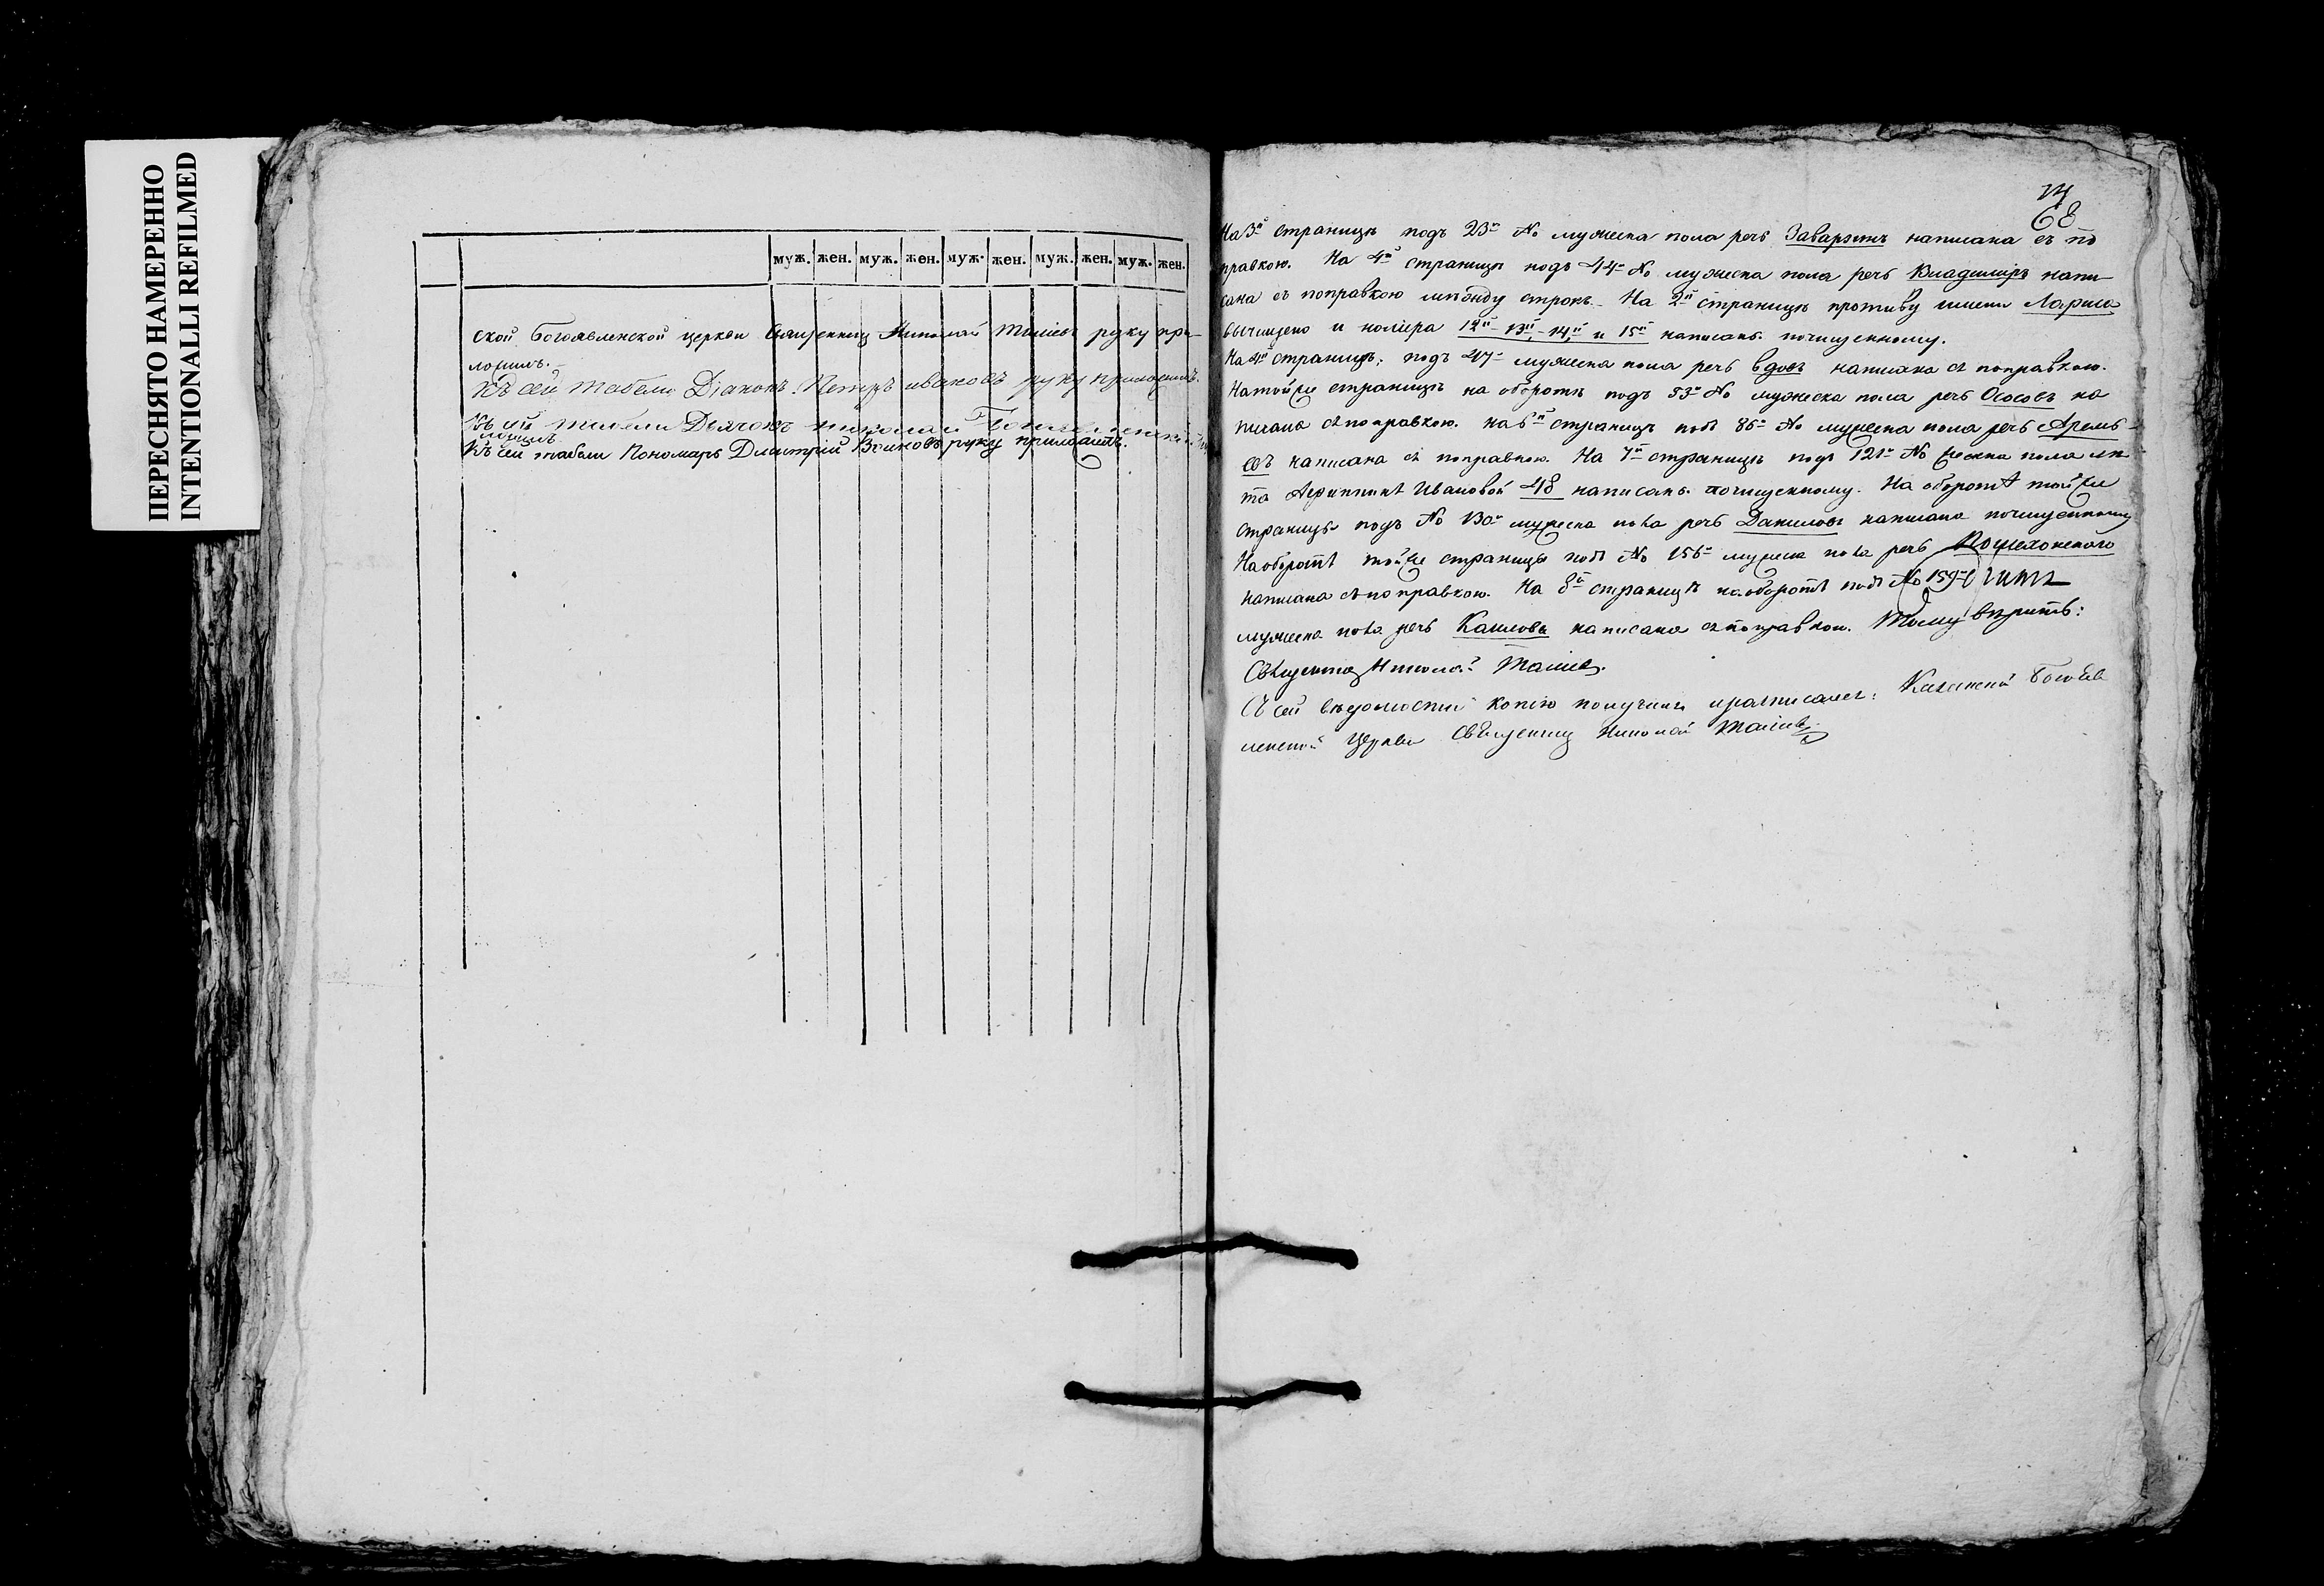 ПЕРЕСНЯТО НАМЕРЕННО
INTENTIONALLI REFILMED
муж. жен. муж. жен. муж. жен. муж. жен. муж. жен.
ской Богоявленской церкви Священник Николай руку при-
ложилъ.
Къ сей табели Діаконъ Петръ ивановъ руку приложилъ.
Къ сей табели Дьячокъ николай
ложилъ
Къ сей табели Пономарь Дмитрій руку приложилъ.
68
На 3й страницѣ подъ 23м № мужеска пола речь Заварзинъ написана съ по
правкою. На 4й страницѣ подъ 44м № мужеска пола речь Владиміръ напи-
сана съ поправкою строкъ. На 2й страницѣ противу имени
вычищено и номера 12й 13й, 14й, и 15й написаны почищенному.
На 4й страницѣ, подъ 47м мужеска пола речь вдовъ написана съ поправкою.
На той же страницѣ на оборотѣ подъ 53м № мужеска пола речь Ососовъ на
писана съ поправкою. на 6й страницѣ подъ 86м № мужеска пола речь
написана съ поправкою. На 7й страницѣ подъ 121м № женска пола лѣ
та Агрипинѣ Ивановой 48 написаны почищенному. На оборотѣ той же
страницы подъ № 130м мужеска пола речь Даниловъ написана почищенному
На оборотѣ той же страницы подъ № 156м мужеска пола речь Пошехонскаго
написана съ поправкою. На 8й страницѣ на оборотѣ подъ № 159м
мужеска пола речь написана съ поправкою. Тому вѣрить:
Священникъ Николай
Съ сей вѣдомости копію получилъ и росписался: Казанской Богояв
ленской Церкви Священникъ Николай